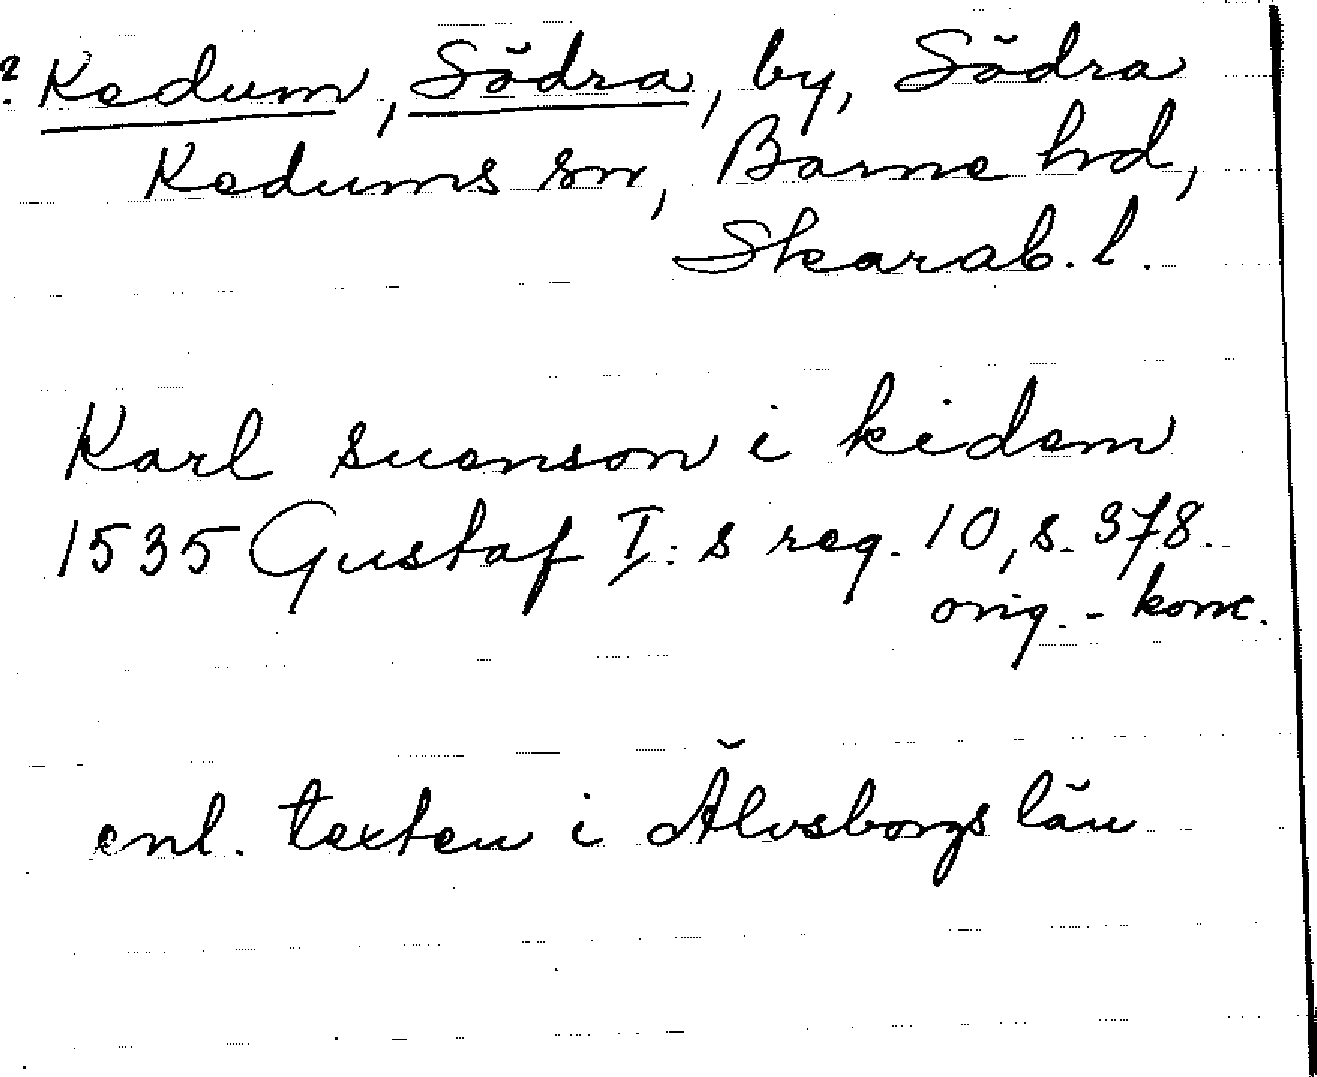 ? Kedum, Södra, by, Södra
Kedums sn, Barne hd,
Skarab. l.
Karl suenson i kidem
1535 Gustaf I:s reg. 10, s. 378.
orig. - konc.
enl. texten i Älvsborgs län